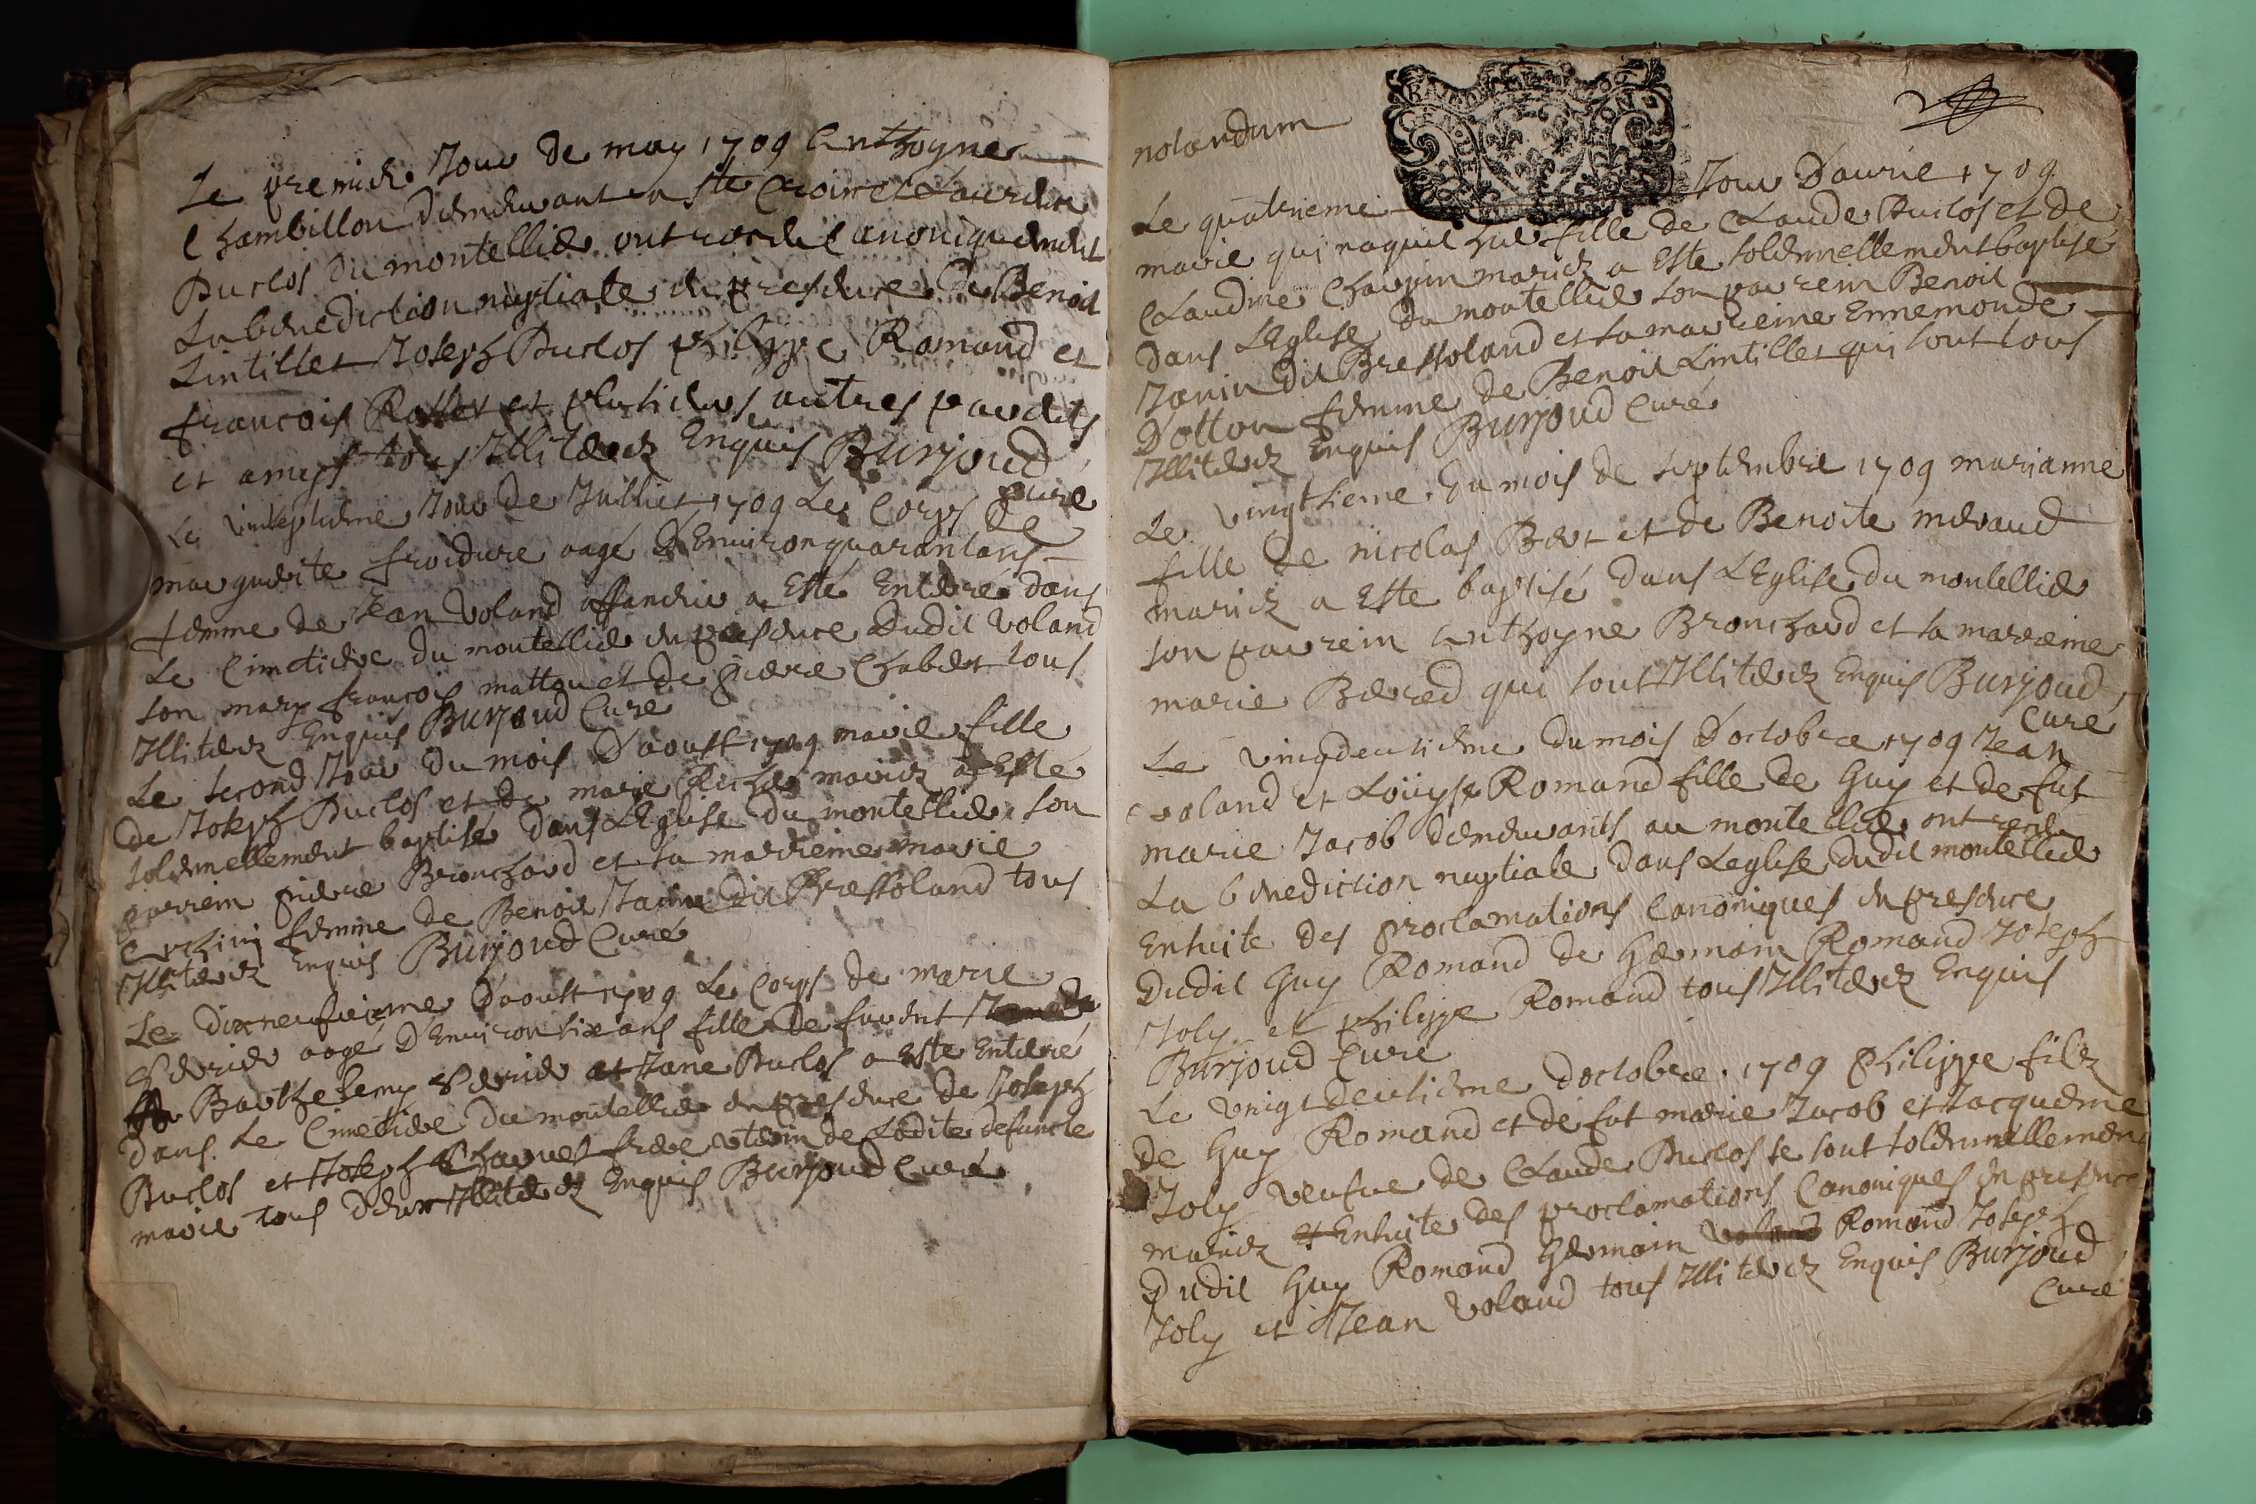 Le premier Jour de may 1709 Anthoyne
Chambillon demeurant a Ste Croix et Laurdine
Duclos du montellier ont receu Canoniquement
La benediction nuptiale en presence De Benoit
Lintillet Joseph Duclos philippe Romand et
francois et plusieurs autres parents
et amys tous Illiterez Enquis Burjoud
curé
Le vinteptieme Jour de Juillet 1709 Le Corps de
marguerite froidure aagé D'Environ quarantans
femme de Jean Voland affaneur a Esté Enterré dans
Le Cimetiere du montellier en presence Dudit Voland
son mary francois matton et de pierre Chabert tous
Illiterez Enquis Burjoud Curé
Le second Jour du mois D'aoust 1709 marie fille
de Joseph Duclos et de marie Riche mariez a Esté
solemnellement baptisé Dans L'Eglise du montellier son
parrein pierre Bronchard et sa marreine marie
femme de Benoit Janin Dit Bressoland tous
Illiterez Enquis Burjoud Curé
Le dixneufvieme D'aoust 1709 Le Corps de marie
aagé D'Environ six ans fille De fuvent
Barthelemy et Jane Duclos a Este Enterré
Dans Le Cimetiere Du montellier en presence de Joseph
Duclos et Joseph Charvet frere uterin de Ladite defuncte
marie tous Deux Illiterez Enquis Burjoud Curé
notandum
Le quatrieme Jour D'avril 1709
marie qui naquit hier fille de Claude Duclos et de
Claudine Chappin mariez a Este solemnellement baptisé
Dans L'Eglise du montellier son parrein Benoit
Janin dit Bressoland et sa marreine Ennemonde
Dotton femme de Benoit Lintillet qui sont tous
Illiterez Enquis Burjoud Curé
Le vingthieme du mois de septembre 1709 marianne
fille de nicolas Bert et de Benoite meraud
mariez a Este baptisé Dans L'Eglise du montellier
son parrein Anthoyne Bronchard et sa marreine
marie Bered qui sont Illiterez Enquis Burjoud
Curé
Le vingdeusieme du mois D'octobre 1709 Jean
voland et Loüyse Romand fille de Guy et de fut
marie Jacob demeurants au montellier ont receu
La benediction nuptiale Dans Leglise dudit montellier
Ensuite des proclamations Canoniques en presence
Dudit Guy Romand de Germain Romand Joseph
Joly et philippe Romand tous Illiterez Enquis
Burjoud Curé
Le vingt deusieme doctobre 1709 philippe filz
de Guy Romand et de fut marie Jacob et Jacqueme
Joly veufve de Claude Duclos se sont solemnellement
mariez et Ensuite des proclamations Canoniques en presence
Dudit Guy Romand Germain voland Romand Joseph
Joly et Jean Voland tous Illiterez Enquis Burjoud
Curé